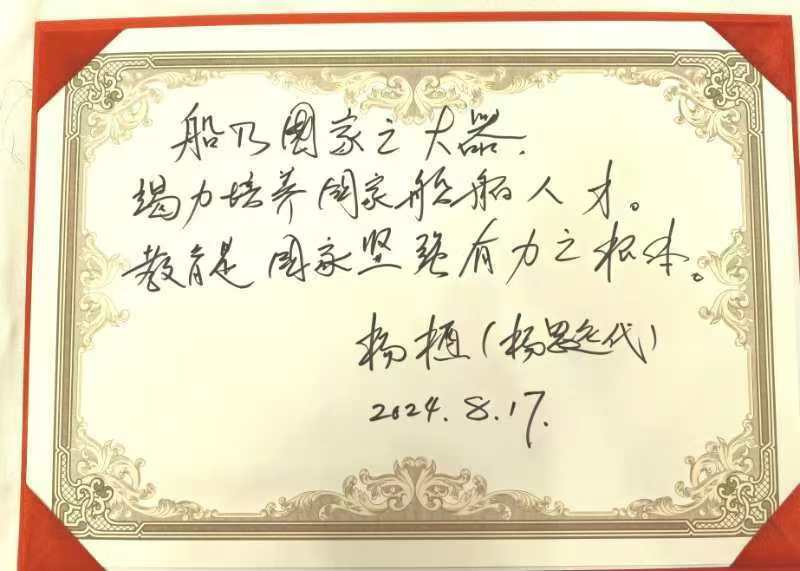 船乃国家之大器.
竭力培养国家船舶人才。
教育是国家坚强有力之根本。
杨植(杨思远代)
2024.8.17.